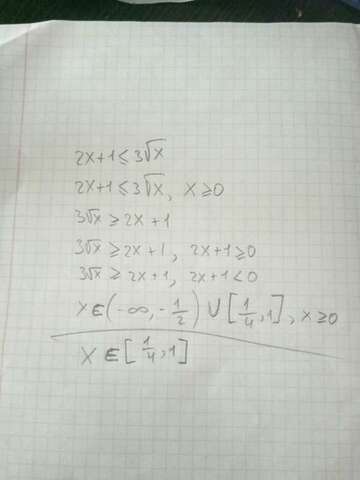 2x+1≤3√x
2x+1≤3√x, x≥0
3√x≥2x+1
3√x≥2x+1, 2x+1≥0
3√x≥2x+1, 2x+1<0
x∈(-∞,-1/2)∪[1/4,1], x≥0
x∈[1/4,1]